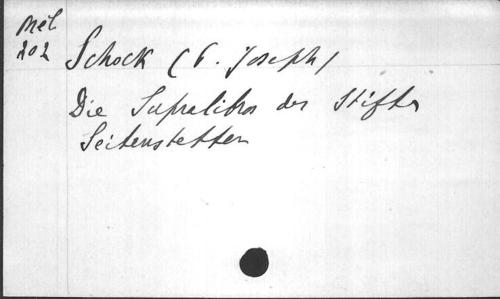 Mél
202
Schock (P. Joseph)
Die Supralibros des Stiftes
Seitenstetten